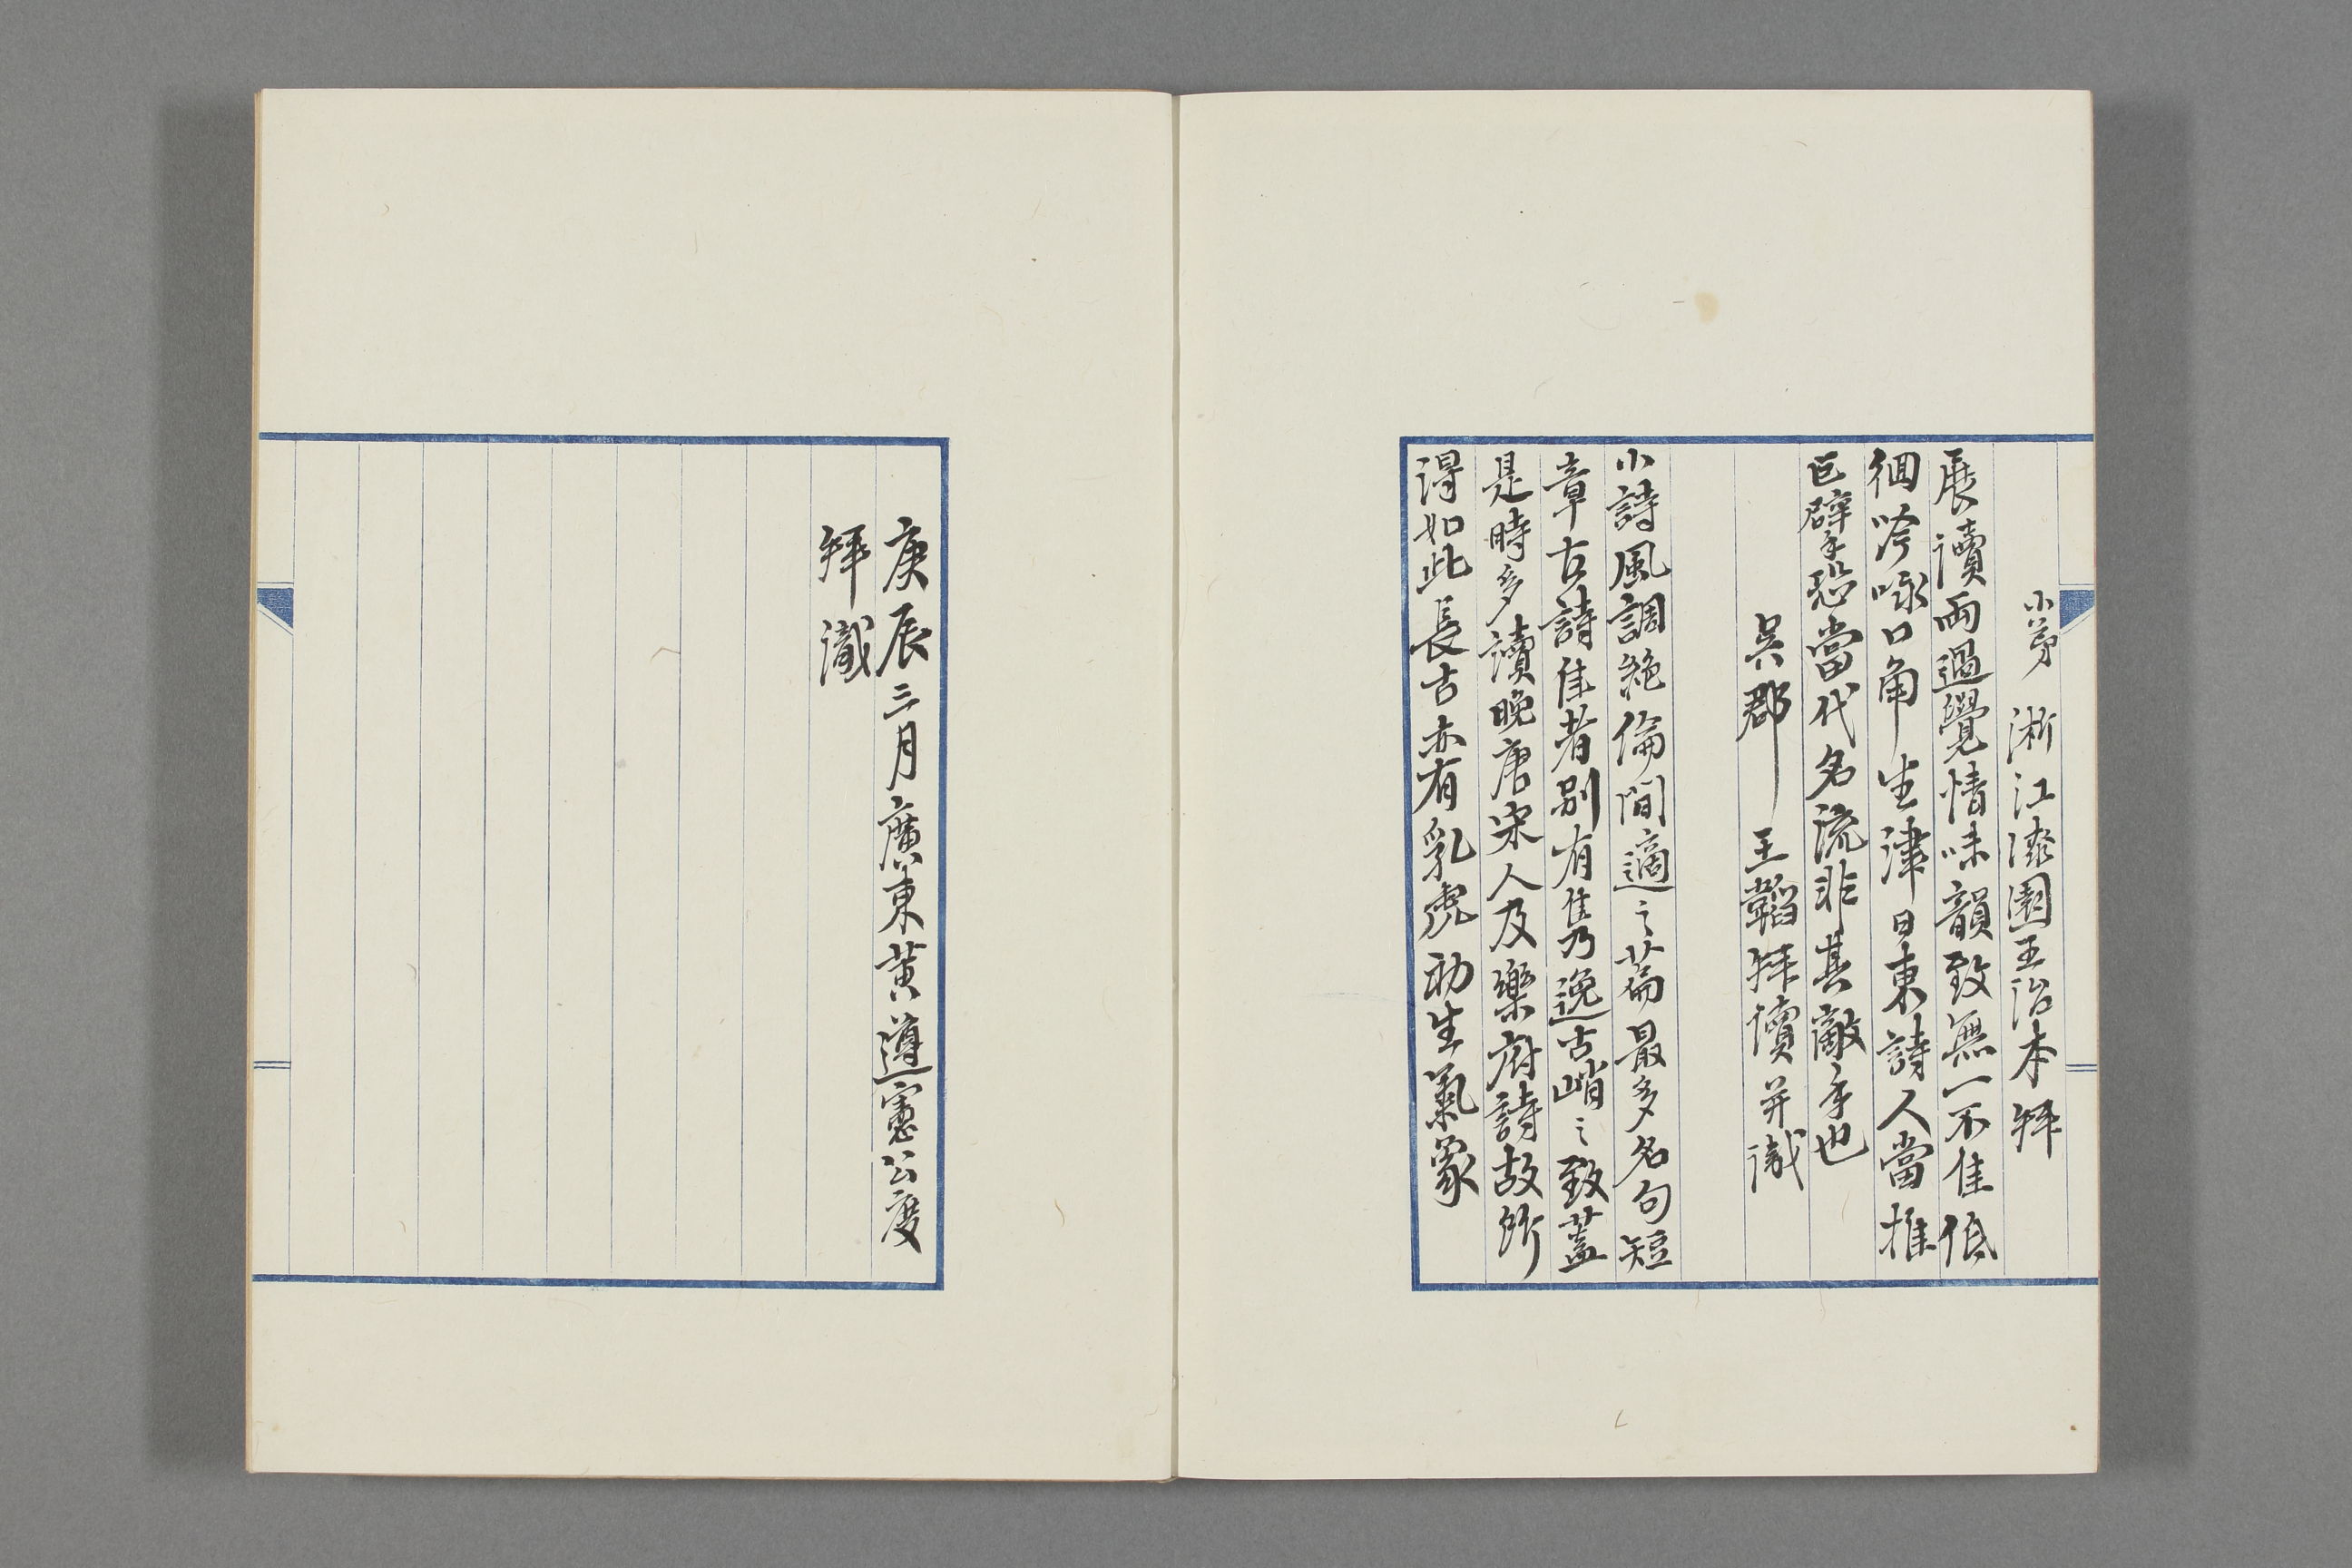 小弟 淅江漆園王治本拜
展讀兩過覺情味韻致無一不佳低
徊吟咏口角生津日東詩人當推
巨擘恐當代名流非其敵手也
吳郡 王韜拜讀并識
小詩風調絶倫間適之萹最多名句短
章古詩佳者別有隽乃逸古峭之致蓋
是時多讀晚唐宋人及樂府詩故所
得如此長古亦有乳虎初生氣象
庚辰三月廣東黃遵憲公度
拜識